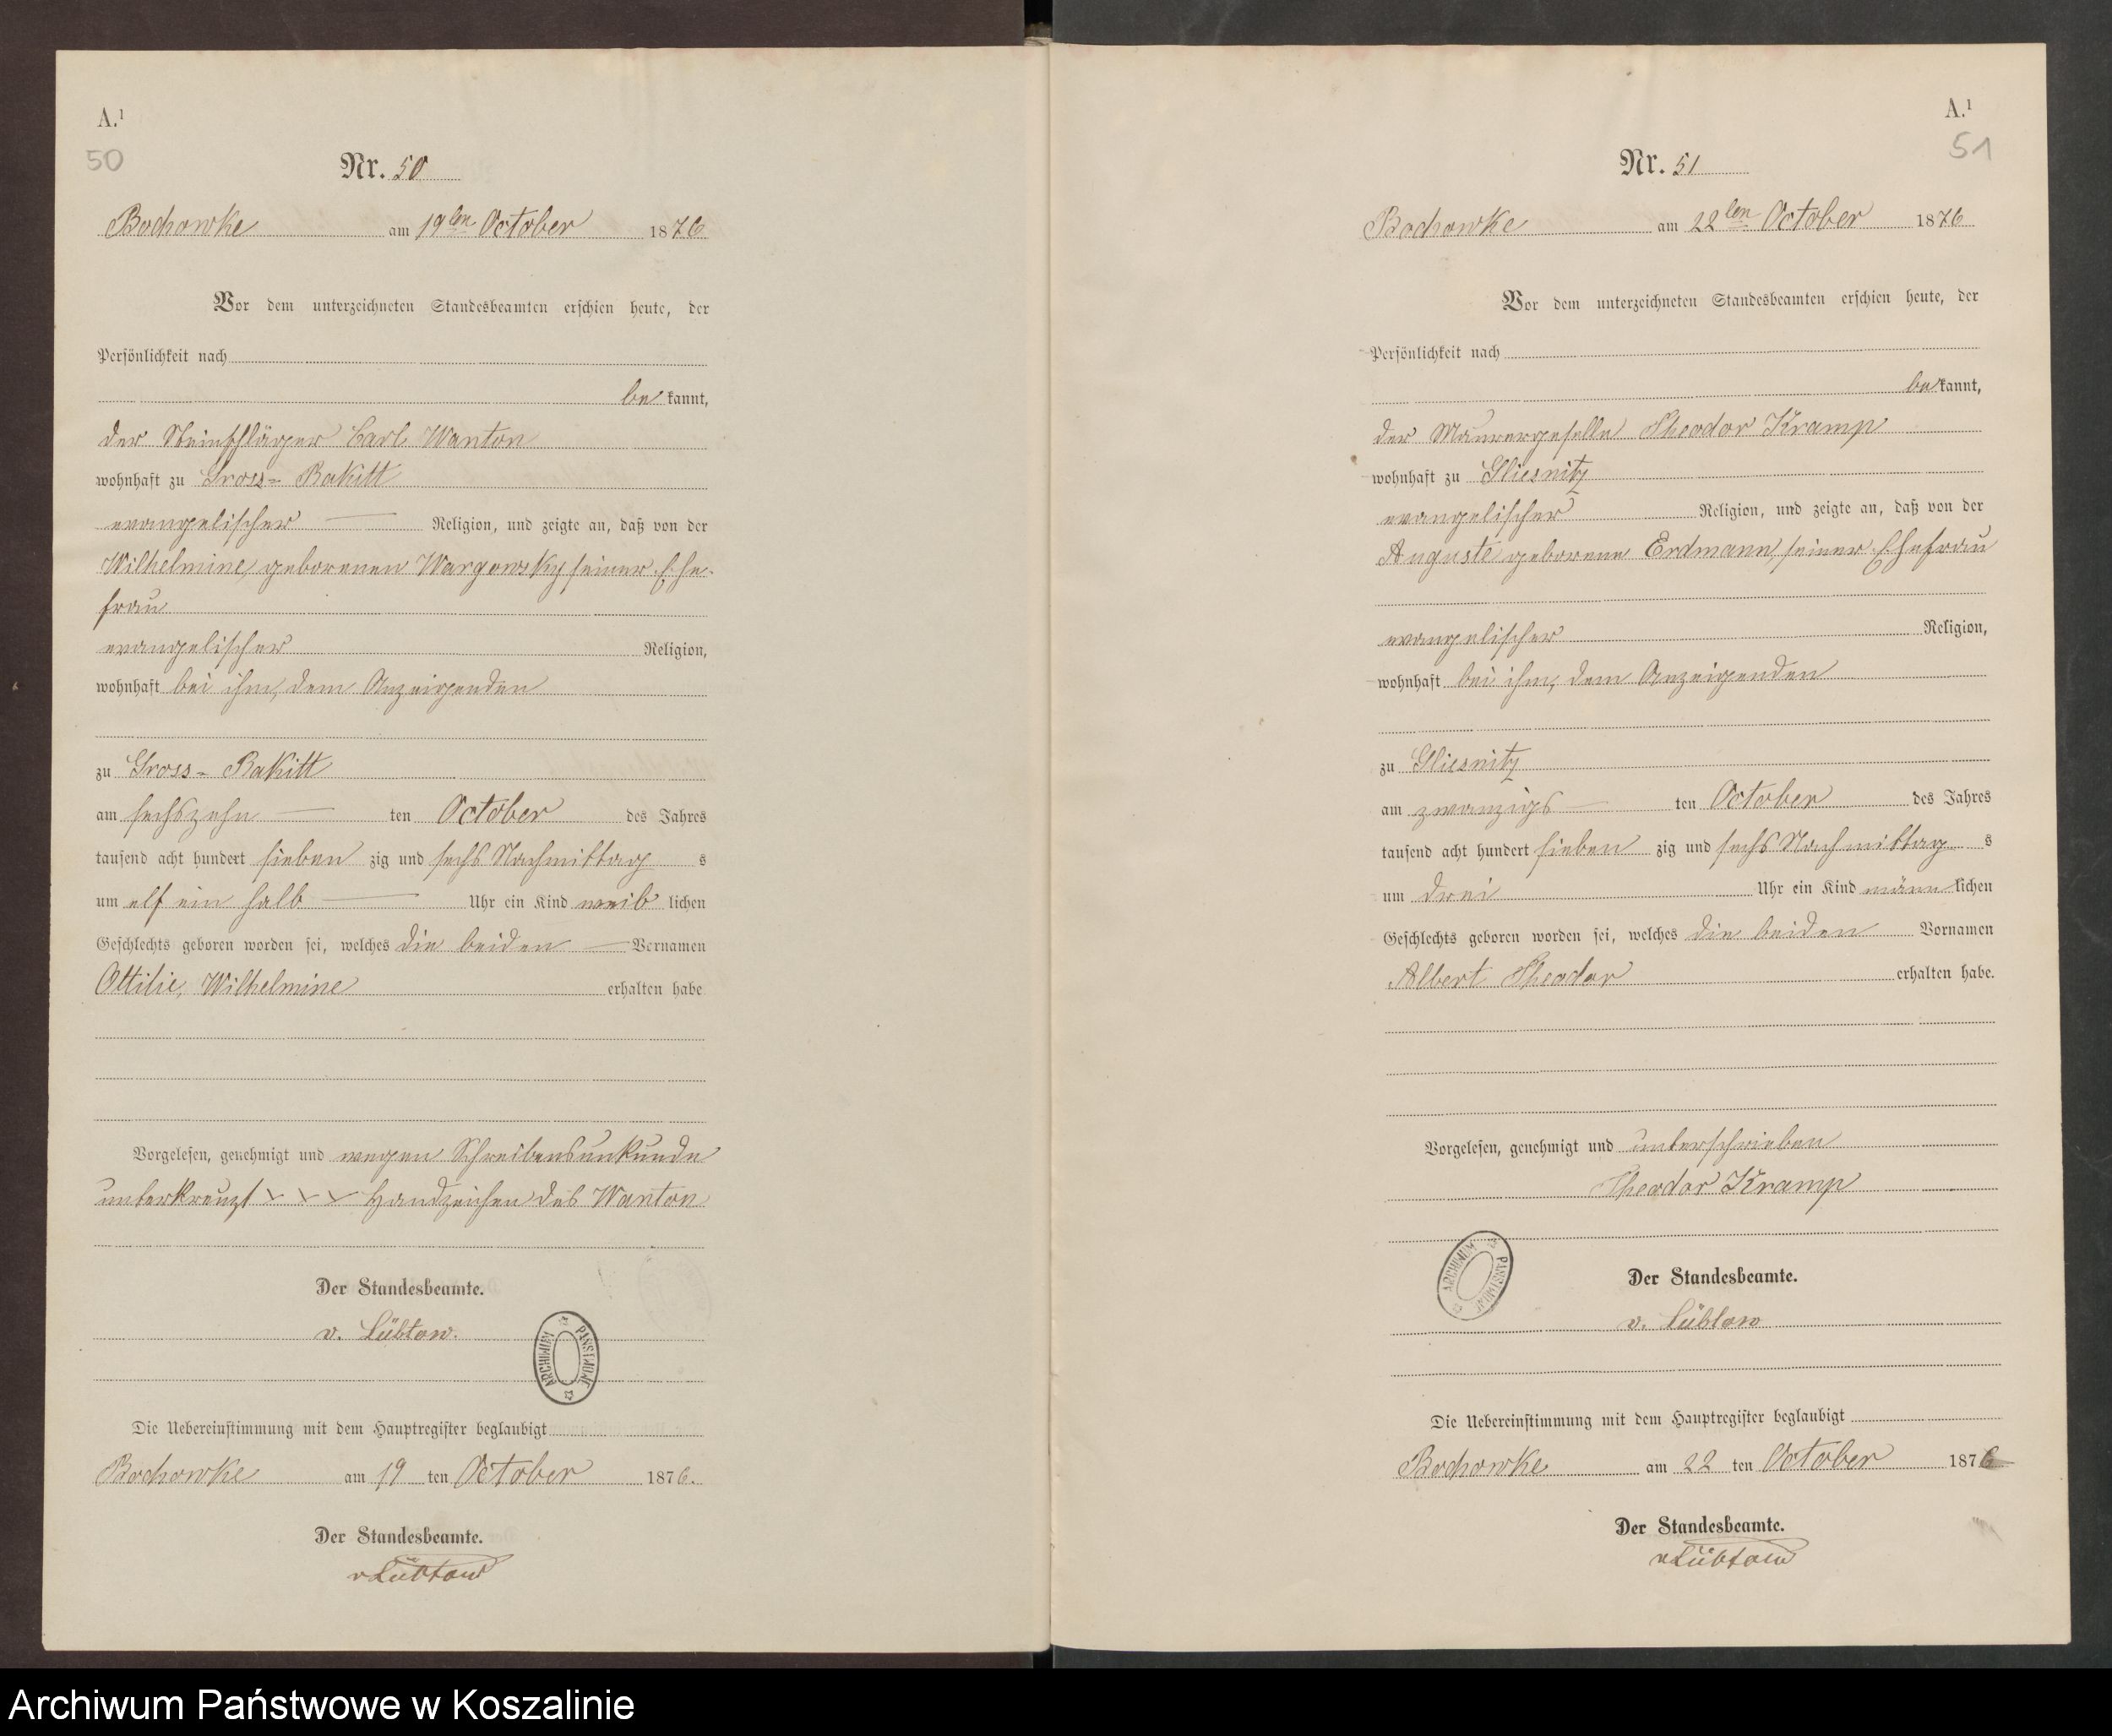 A.¹
50
Nr. 50
Bochowke am 19ten October 1876
Vor dem unterzeichneten Standesbeamten erschien heute, der
Persönlichkeit nach
be kannt,
der Steinschläger Carl Wanton
wohnhaft zu Gross-Rakitt
evangelischer Religion, und zeigte an, daß von der
Wilhelmine, geborenen Wargowsky seiner Ehe-
frau
evangelischer Religion,
wohnhaft bei ihm, dem Anzeigenden
zu Gross-Rakitt
am sechszehn ten October des Jahres
tausend acht hundert sieben zig und sechs Nachmittag s
um elf ein halb Uhr ein Kind weib lichen
Geschlechts geboren worden sei, welches die beiden Vornamen
Ottilie, Wilhelmine erhalten habe
Vorgelesen, genehmigt und wegen Schreibensunkunde
unterkreuzt x x x Handzeichen des Wanton
Der Standesbeamte.
v. Lübtow.
ARCHIWUM PAŃSTWOWE
Die Uebereinstimmung mit dem Hauptregister beglaubigt
Bochowke am 19 ten October 1876.
Der Standesbeamte.
v Lübtow
A.¹
51
Nr. 51
Bochowke am 22ten October 1876
Vor dem unterzeichneten Standesbeamten erschien heute, der
Persönlichkeit nach
be kannt,
der Maurergeselle Theodor Kramp
wohnhaft zu Gliesnitz
evangelischer Religion, und zeigte an, daß von der
Auguste geborene Erdmann, seiner Ehefrau
evangelischer Religion,
wohnhaft bei ihm, dem Anzeigenden
zu Gliesnitz
am zwanzigs ten October des Jahres
tausend acht hundert sieben zig und sechs Nachmittag s
um drei Uhr ein Kind männ lichen
Geschlechts geboren worden sei, welches die beiden Vornamen
Albert Theodor erhalten habe.
Vorgelesen, genehmigt und unterschrieben
Theodor Kramp
ARCHIWUM PAŃSTWOWE
Der Standesbeamte.
v. Lübtow
Die Uebereinstimmung mit dem Hauptregister beglaubigt
Bochowke am 22 ten October 1876
Der Standesbeamte.
v Lübtow
Archiwum Państwowe w Koszalinie